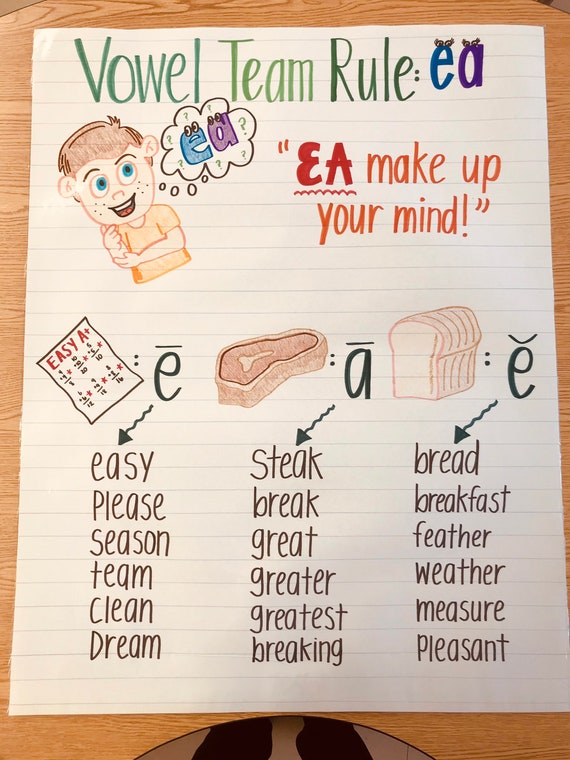 Vowel Team Rule: ea
ea
? ? ? ? ?
"EA make up
your mind!"
EASY A+
: ē
: ā
: ĕ
easy
Please
Season
team
Clean
Dream
Steak
break
great
greater
greatest
breaking
bread
breakfast
feather
weather
measure
Pleasant